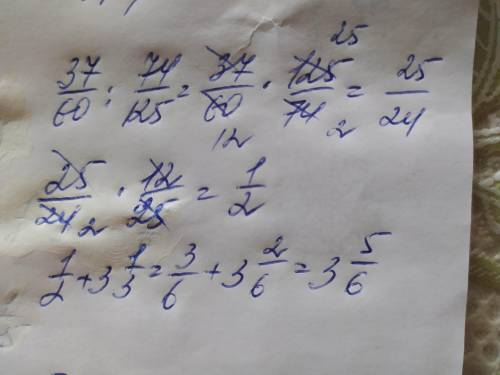 37/60 : 74/125 = 37/60 · 125/74 = 25/24
25
12 2
25/24 · 12/25 = 1/2
2
1/2 + 3 1/3 = 3/6 + 3 2/6 = 3 5/6